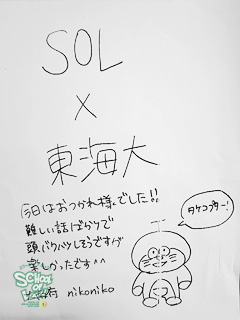 SOL
×
東海大
今日はおつかれ様でした!!
難しい話ばらりで
頭バクハツしそうですが
楽しかったです^^
有 nikoniko
タケコプター!
SCHOOL OF